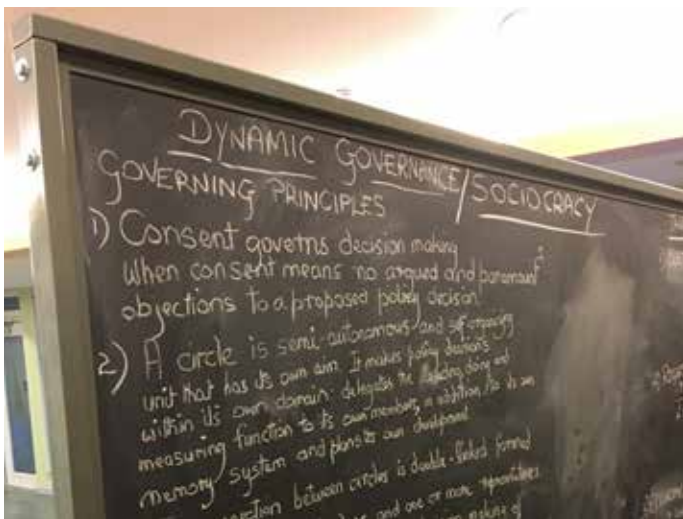 DYNAMIC GOVERNANCE/SOCIOCRACY
GOVERNING PRINCIPLES
1) Consent governs decision making
When consent means no argued and paramount
objections to a proposed policy decision
2) A circle is semi-autonomous and self-organizing
unit that has its own aim. It makes policy decisions
within its own domain: delegates the leading, doing and
measuring function to its own members, in addition, has its own
memory system and plans its own development
between circles is double-linked formed
and one or more representatives
making of